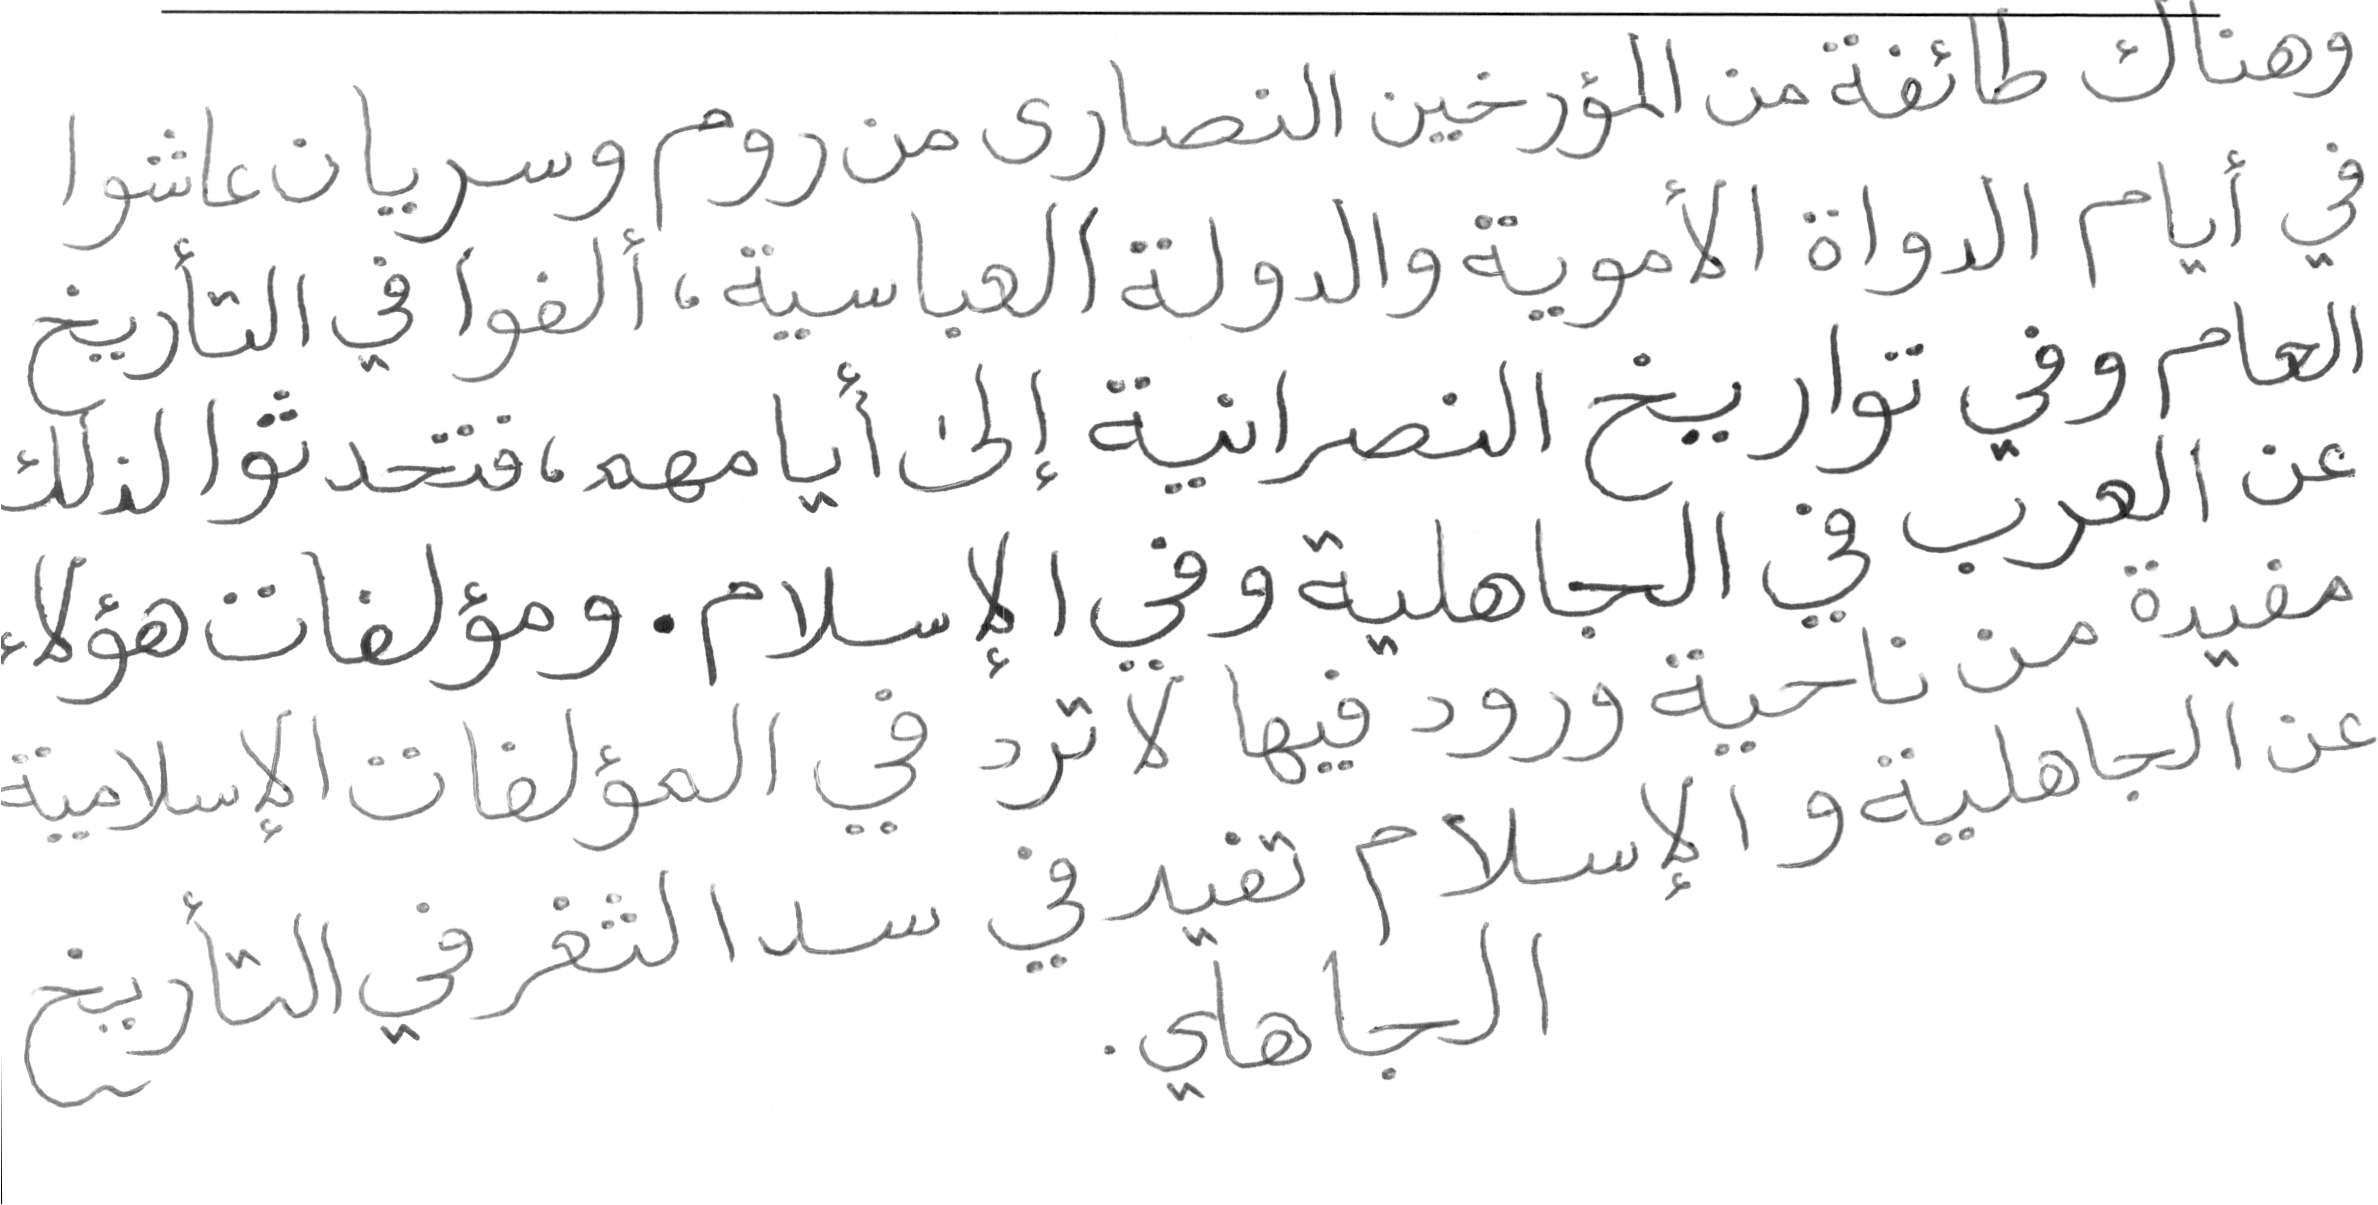 وهناك طائفة من المؤرخين النصارى من روم وسريان عاشوا
في أيام الدواة الأموية والدولة العباسية، ألفوا في التأريخ
العام وفي تواريخ النصرانية إلى أيامهم، فتحدثوا لذلك
عن العرب في الجاهلية وفي الإسلام. ومؤلفات هؤلاء
مفيدة من ناحية ورود فيها لا ترد في المؤلفات الإسلامية
عن الجاهلية و الإسلام تفيد في سد الثغر في التأريخ
الجاهلي.